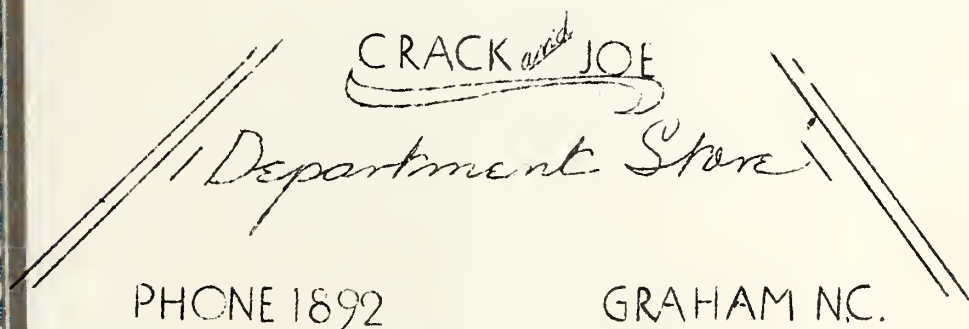 CRACK and JOE
Department Store
PHONE 1892 GRAHAM N.C.